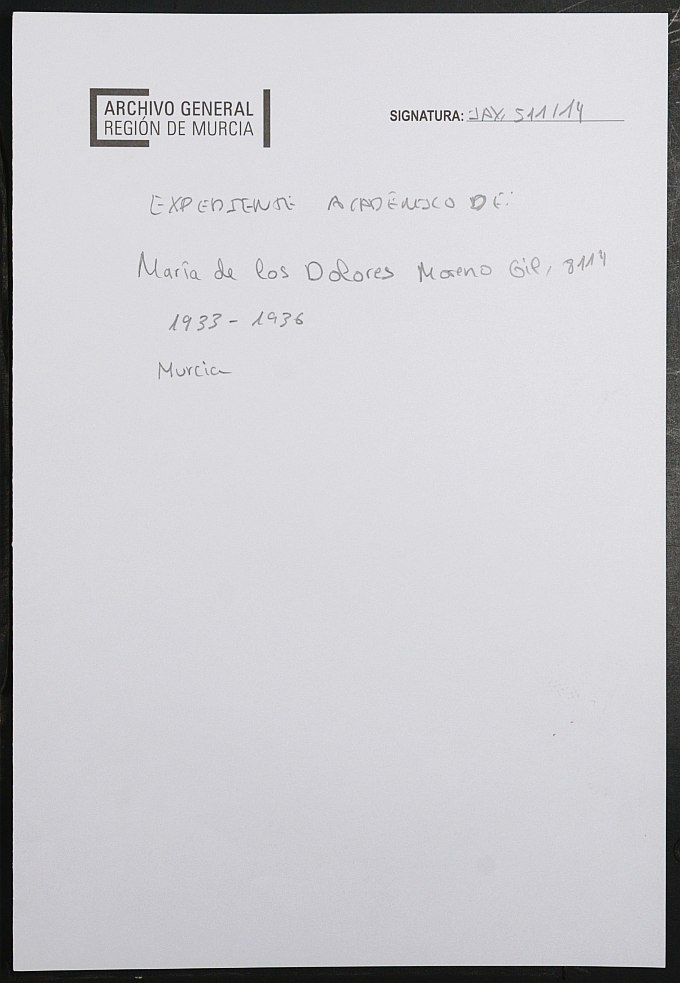 ARCHIVO GENERAL
REGIÓN DE MURCIA
SIGNATURA: JAX, 511/14
EXPEDIENTE ACADÉMICO DE:
María de los Dolores Moreno Gil, 8114
1933 - 1936
Murcia